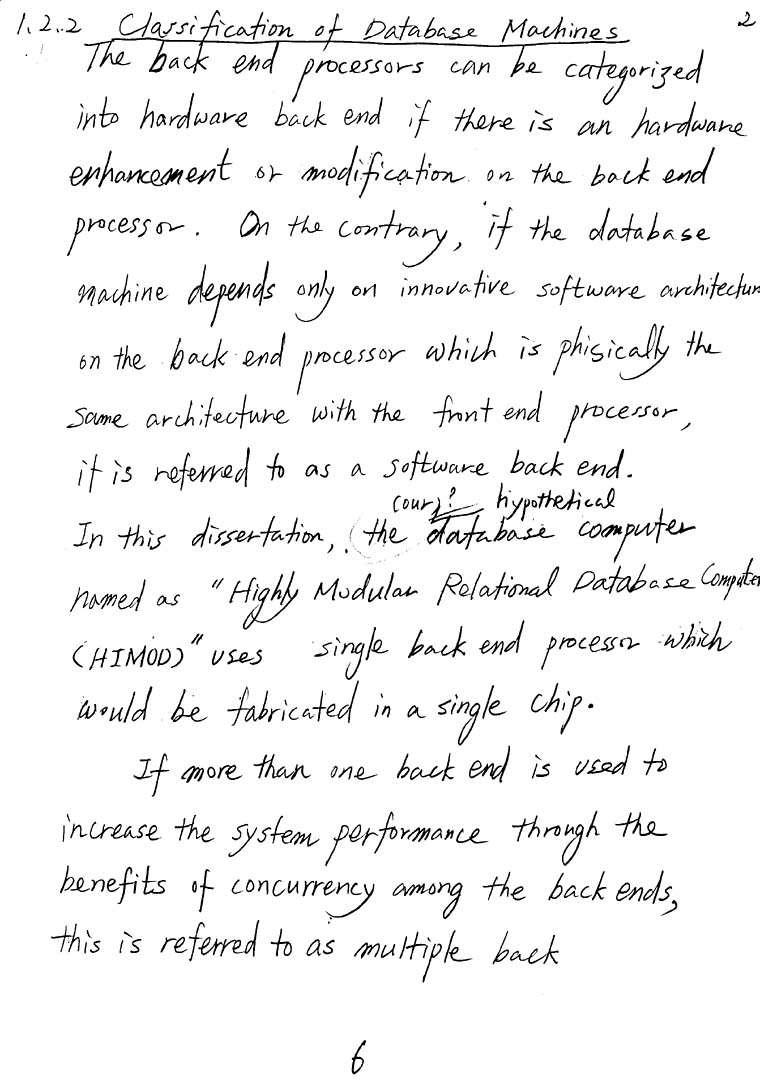 1.2.2 Classification of Database Machines 2
The back end processors can be categorized
into hardware back end if there is an hardware
enhancement or modification on the back end
processor. On the contrary, if the database
machine depends only on innovative software architectur
on the back end processor which is phisically the
same architecture with the front end processor,
it is referred to as a software back end.
(our)? hypothetical
In this dissertation, the database computer
named as "Highly Modular Relational Database Computer
(HIMOD)" uses single back end processor which
would be fabricated in a single chip.
If more than one back end is used to
increase the system performance through the
benefits of concurrency among the back ends,
this is referred to as multiple back
6